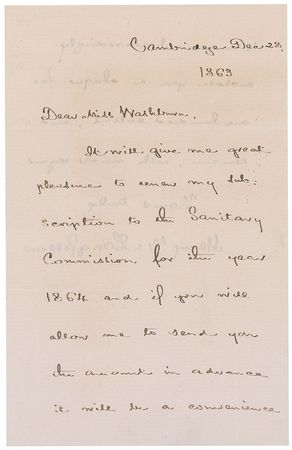 Cambridge Dec 23.
1863
Dear Miss Washburn.
It will give me great
pleasure to renew my sub-
scription to the Sanitary
Commission for the year
1864 and if you will
allow me to send you
the amount in advance
it will be a convenience